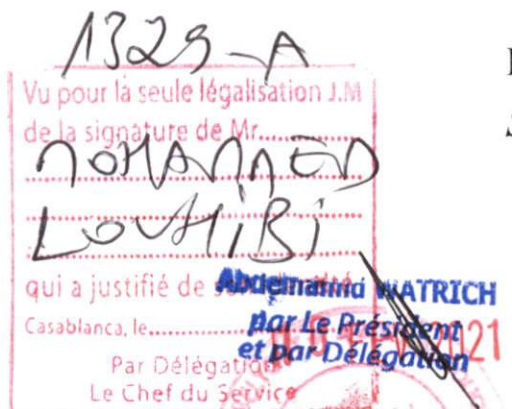 1329-A
Vu pour la seule légalisation J.M
de la signature de Mr.........
MOHAMMED
LOUHIBI
qui a justifié de
WATRICH
Casablanca, le.........
par Le Président
et par Délégation
21
Par Délégation
Le Chef du Service